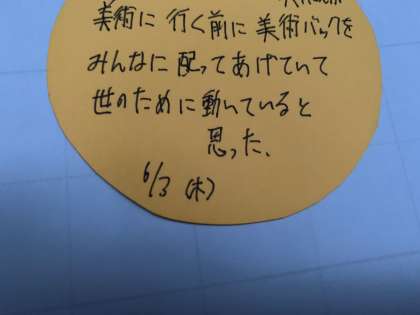 美術に行く前に美術バックを
みんなに配ってあげていて
世のために動いていると
思った、
6/3 (木)